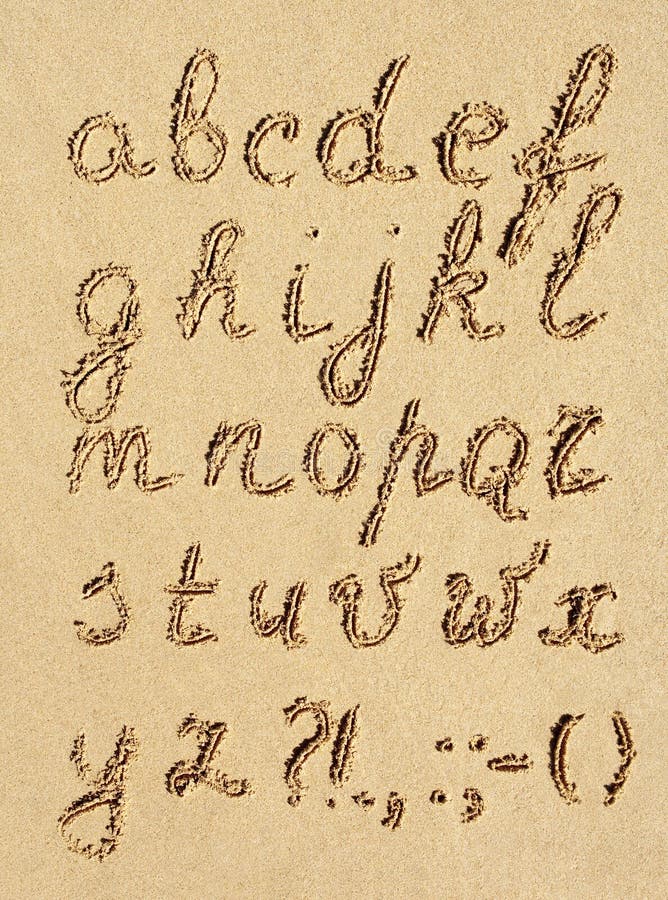 abcdef
ghijkl
mnopQr
stuvwx
yz?!.,:;-()